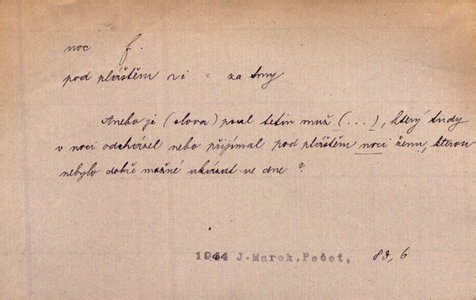 noc f.
pod pláštěm n i = za tmy
Anebo ji (slova) psal tetin muž (...), který tudy
v noci odcházel nebo přijímal pod pláštěm noci ženu, kterou
nebylo dobře možné ukázat ve dne?
1944 J. Marek, Pečeť, 83, 6